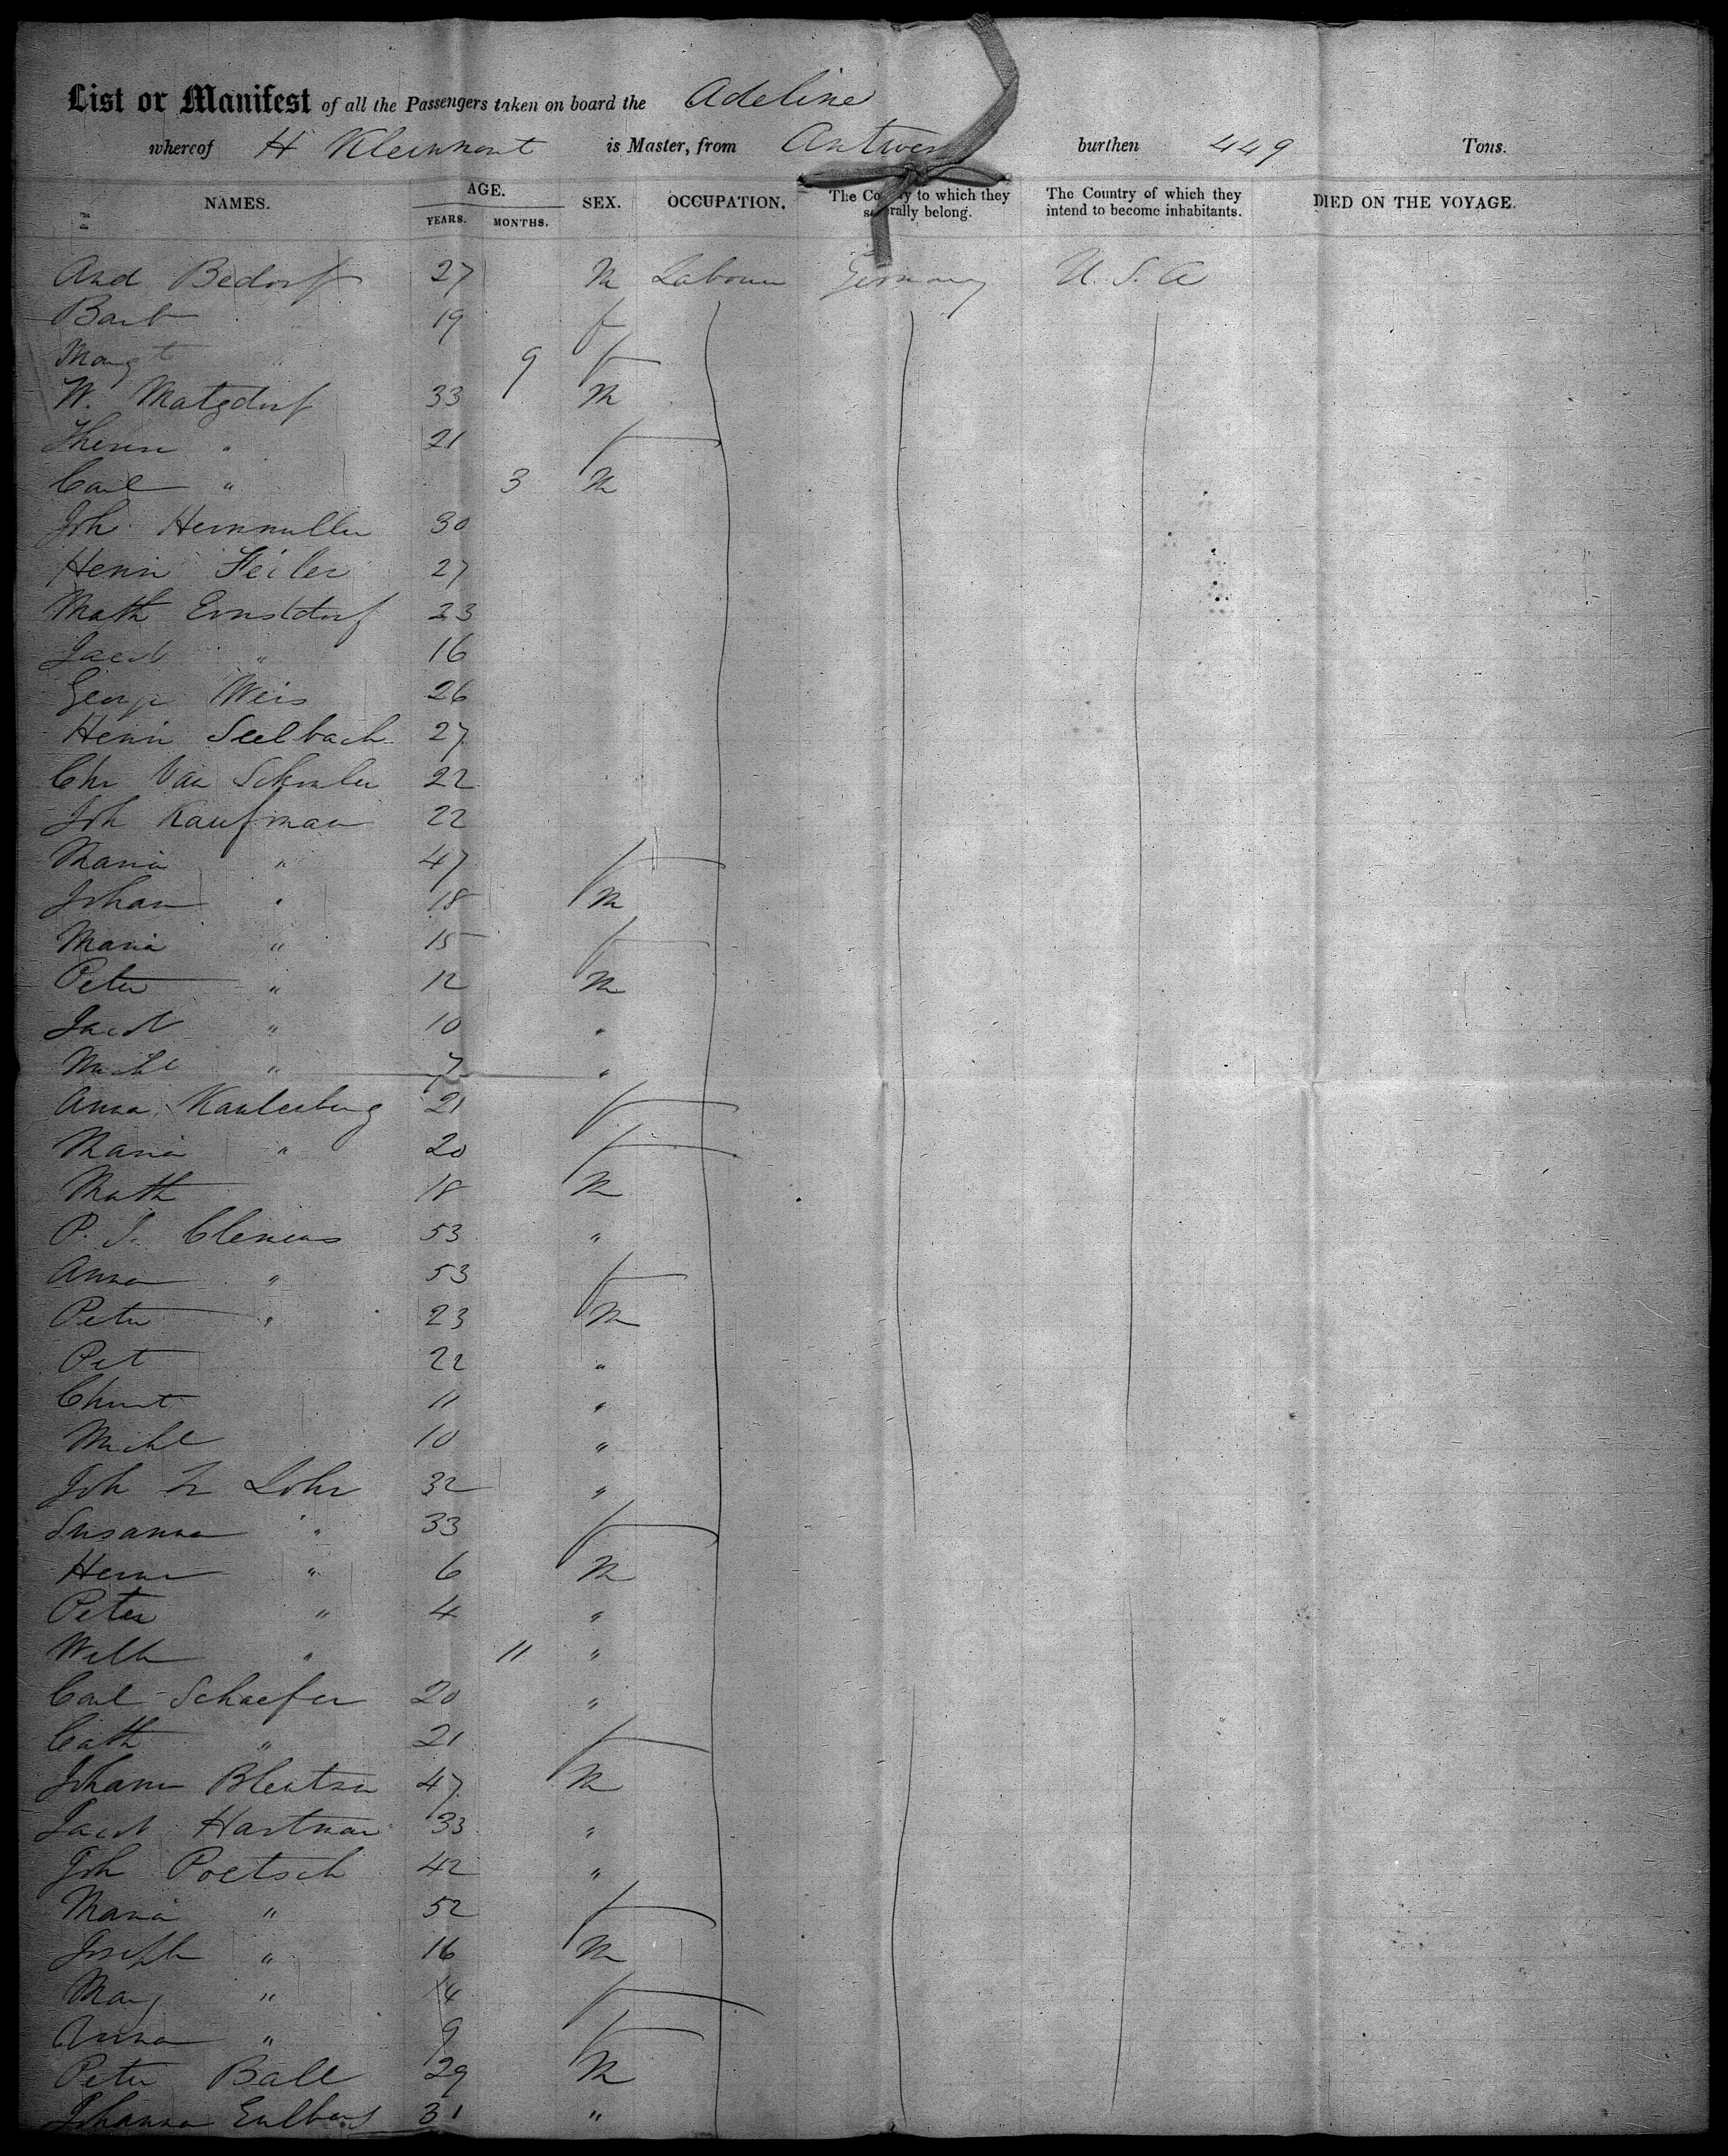 List or Manifest of all the Passengers taken on board the Adeline
whereof H Kleinkont is Master, from Antwerp burthen 449 Tons.
NAMES. AGE. YEARS. MONTHS. SEX. OCCUPATION. The Country to which they severally belong. The Country of which they intend to become inhabitants. DIED ON THE VOYAGE.
And Bedorf 27 M Labourer Germany U.S.A
Barb 19 f
Margt " 9 f
W. Matzdorf 33 M
" 21 f
Carl " 3 M
Joh 30
Henri Feiler 27
Math Ernstdorf 23
Jacob " 16
George Weis 26
Henri Seelbach 27
Chr Van 22
Joh Kaufman 22
Maria " 47 f
Johan " 18 M
Maria " 15 f
Peter " 12 M
Jacob " 10 "
Michl " 7 "
Anna Kauleberg 21 f
Maria " 20 f
Math 18 M
P. J. Clemens 53 "
Anna " 53 f
Peter " 23 M
Pet 22 "
Christ 11 "
Michl 10 "
Joh Lohr 32 "
Susanna " 33 f
Herm " 6 M
Peter " 4 "
Wilh " 11 "
Carl Schaefer 20 "
Cath " 21 f
Johann 47 M
Jacob Hartman 33 "
Joh Poetsch 42 "
Maria " 52 f
Joseph " 16 M
Marg " 14 f
Anna " 9 f
Peter Ball 29 M
Johanna 31 "